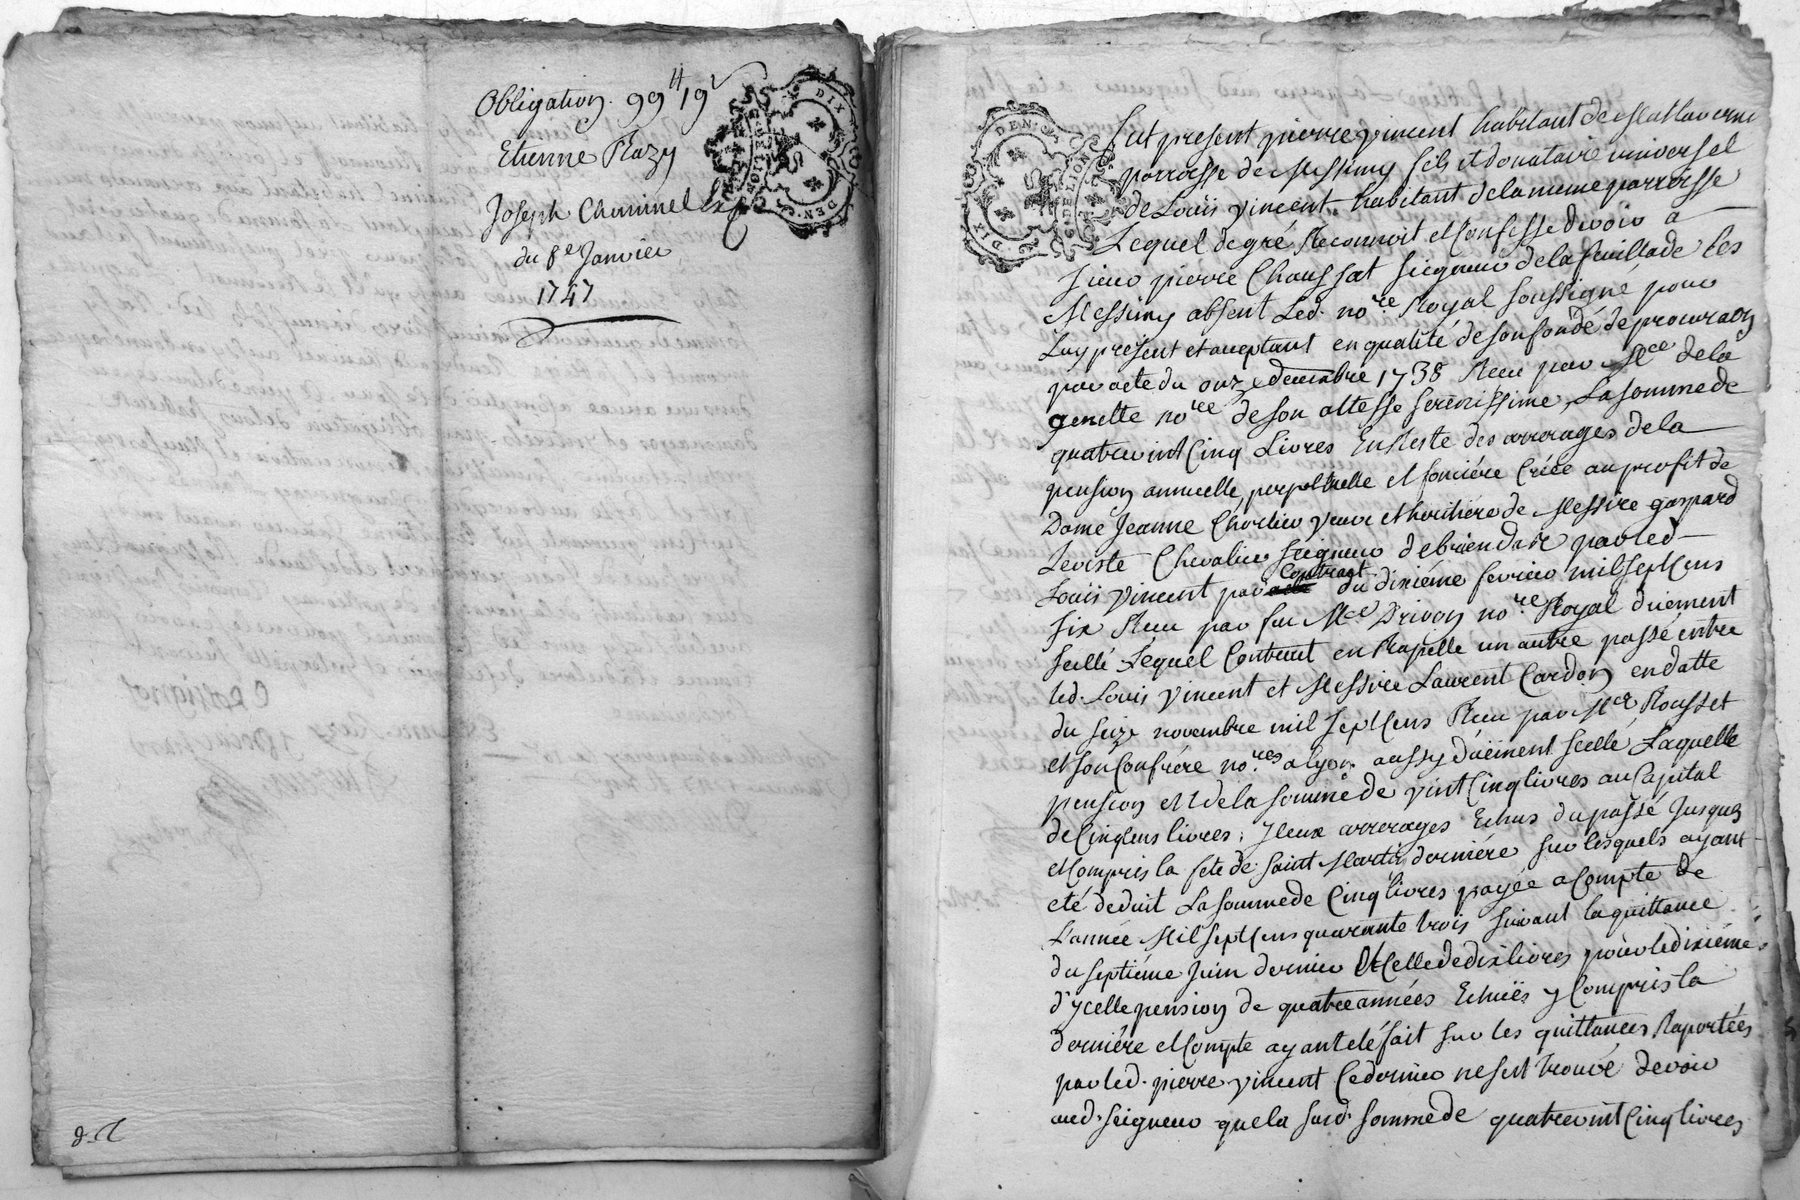 Obligation 99ᵗᵗ 19ˢ
Etienne Razy
Joseph Cheminel
du 8e Janvier
1747
DIX DEN. G. DE LION
DIX DEN. G. DE LION
fut present pierre vincent habitant de
parroisse de Messimy fils et donataire universel
de Louis vincent habitant de la meme parroisse
Lequel de gré Reconnoit et Confesse devoir a
sieur pierre Chaussat seigneur de la feuillade les
Messimy absent Led. nore Royal soussigné pour
Luy présent et acceptant en qualité de son fondé de procuraon
par acte du onze decembre 1738 Receu par Mce dela
genette nore de son altesse serenissime, La somme de
quatrevint Cinq Livres En Reste des arrerages de la
pension annuelle, perpetuelle et fonciére Créée au profit de
Dame Jeanne Charlieu veuve et heritiére de Messire gaspard
Leviste Chevalier seigneur de briendate par led
Louis vincent par Contract du dixiéme fevrier mil sept Cens
six Receu par feu Mce Drivon nore Royal düement
scellé Lequel Contract en Rapelle un autre passé entre
led. Louis vincent et Messire Laurent Cardon en datte
du seize novembre mil sept Cens Receu par Mce Rousset
et son Confrére nores a lyon aussy düement scellé Laquelle
pension est de la somme de vint Cinq livres au Capital
de Cinq Cens livres, Iceux arrerages Echus du passé Jusques
et Compris la fete de saint Martin derniére sur lesquels ayant
eté deduit La somme de Cinq livres payée a Compte de
L'année Mil sept Cens quarante trois suivant la quittance
du septiéme Juin dernier Et Celle de dix livres pour le dixiéme
d'ycelle pension de quatre années Echües y Compris la
derniére et Compte ayant eté fait sur les quittances Raportées
par led. pierre vincent Ce dernier ne s'est trouvé devoir
aud. seigneur que la susd. somme de quatrevint Cinq livres